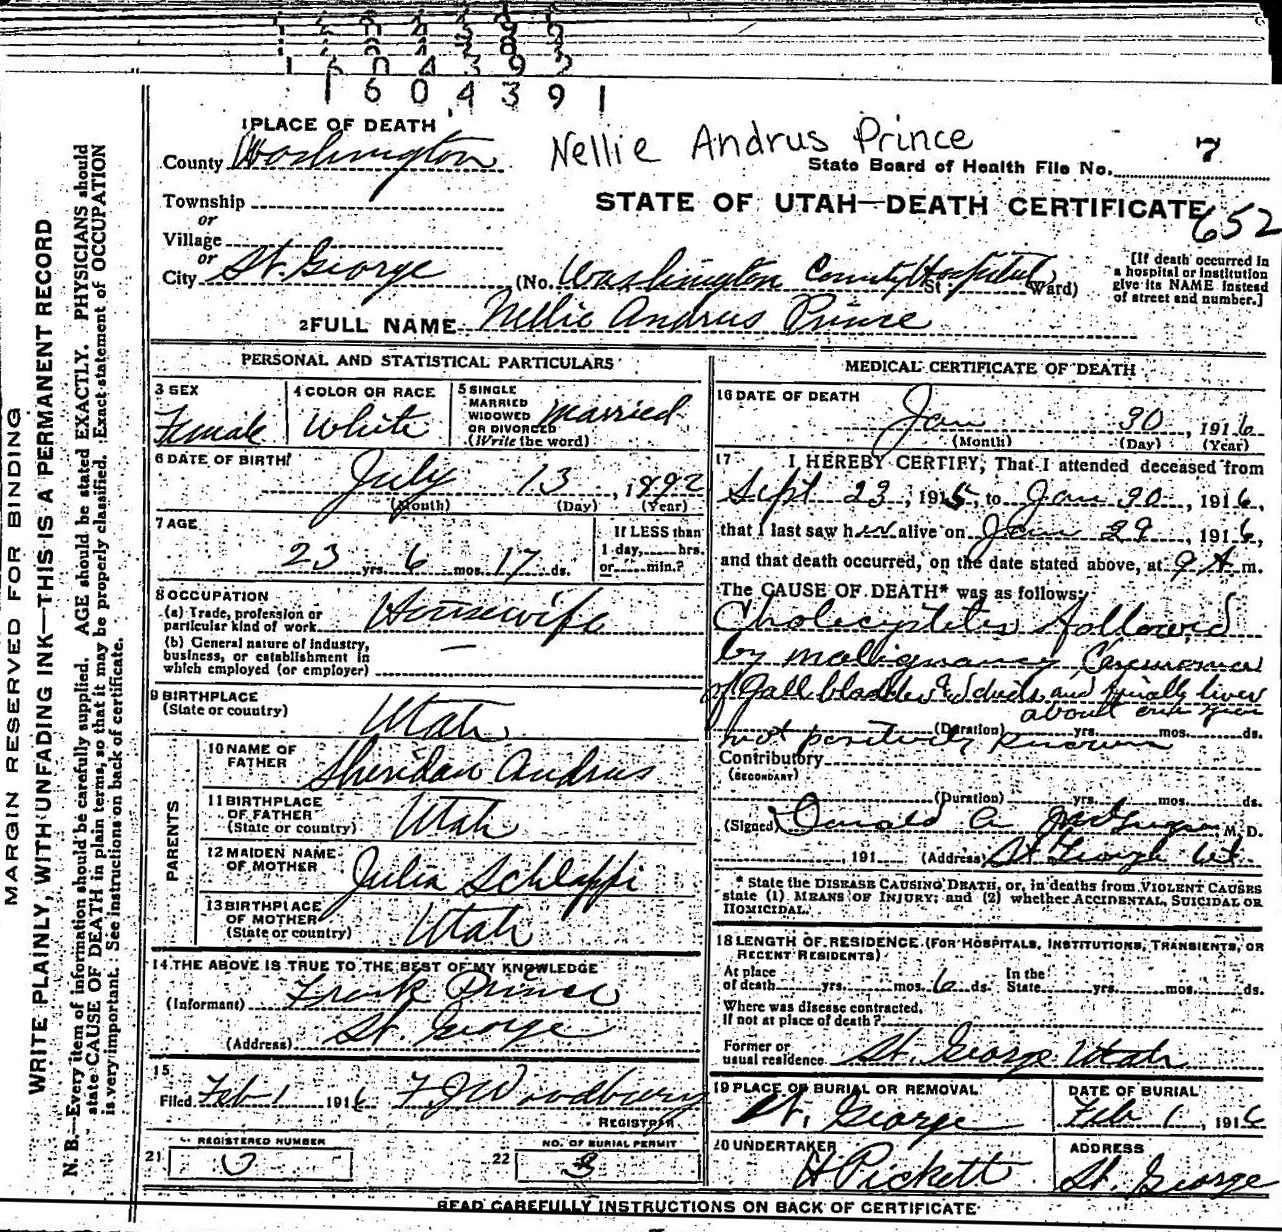 1 6 0 4 3 9 2
1 6 0 4 3 9 1
1 PLACE OF DEATH
Nellie Andrus Prince
7
County Washington
State Board of Health File No.
Township
STATE OF UTAH—DEATH CERTIFICATE
652
or
Village
or
City St. George (No. Washington County Hospital St. Ward)
[If death occurred in
a hospital or institution
give its NAME instead
of street and number.]
2 FULL NAME Nellie Andrus Prince
PERSONAL AND STATISTICAL PARTICULARS
3 SEX
Female
4 COLOR OR RACE
White
5 SINGLE
MARRIED
WIDOWED
OR DIVORCED
(Write the word)
Married
6 DATE OF BIRTH
July 13, 1892
(Month) (Day) (Year)
7 AGE
23 yrs. 6 mos. 17 ds.
If LESS than
1 day, hrs.
or min.?
8 OCCUPATION
(a) Trade, profession or
particular kind of work
Housewife
(b) General nature of industry,
business, or establishment in
which employed (or employer)
—
9 BIRTHPLACE
(State or country)
Utah
PARENTS
10 NAME OF
FATHER
Sheridan Andrus
11 BIRTHPLACE
OF FATHER
(State or country)
Utah
12 MAIDEN NAME
OF MOTHER
Julia Schlappi
13 BIRTHPLACE
OF MOTHER
(State or country)
Utah
14 THE ABOVE IS TRUE TO THE BEST OF MY KNOWLEDGE
(Informant) Frank Prince
(Address) St. George
15
Filed Feb 1 1916 F. J. Woodbury
REGISTRAR
REGISTERED NUMBER
21
NO. OF BURIAL PERMIT
22 3
MEDICAL CERTIFICATE OF DEATH
16 DATE OF DEATH
Jan 30, 1916
(Month) (Day) (Year)
17 I HEREBY CERTIFY, That I attended deceased from
Sept 23, 1915, to Jan 30, 1916,
that I last saw her alive on Jan 29, 1916,
and that death occurred, on the date stated above, at 9 A m.
The CAUSE OF DEATH* was as follows:
Cholecystitis followed
by malignancy Carcinoma
of Gall bladder & ducts and finally liver
about one year
(Duration) yrs. mos. ds.
not positively known
Contributory
(SECONDARY)
(Duration) yrs. mos. ds.
(Signed) Donald A McGregor M. D.
191 (Address) St George Ut.
* State the DISEASE CAUSING DEATH, or, in deaths from VIOLENT CAUSES
state (1) MEANS OF INJURY; and (2) whether ACCIDENTAL, SUICIDAL OR
HOMICIDAL.
18 LENGTH OF RESIDENCE (FOR HOSPITALS, INSTITUTIONS, TRANSIENTS, OR
RECENT RESIDENTS)
At place
of death yrs. mos. 6 ds.
In the
State yrs. mos. ds.
Where was disease contracted,
if not at place of death?
Former or
usual residence St. George Utah
19 PLACE OF BURIAL OR REMOVAL
St. George
DATE OF BURIAL
Feb 1, 1916
20 UNDERTAKER
H Pickett
ADDRESS
St. George
READ CAREFULLY INSTRUCTIONS ON BACK OF CERTIFICATE
MARGIN RESERVED FOR BINDING
WRITE PLAINLY, WITH UNFADING INK—THIS IS A PERMANENT RECORD
N. B.—Every item of information should be carefully supplied. AGE should be stated EXACTLY. PHYSICIANS should
state CAUSE OF DEATH in plain terms, so that it may be properly classified. Exact statement of OCCUPATION
is very important. See instructions on back of certificate.